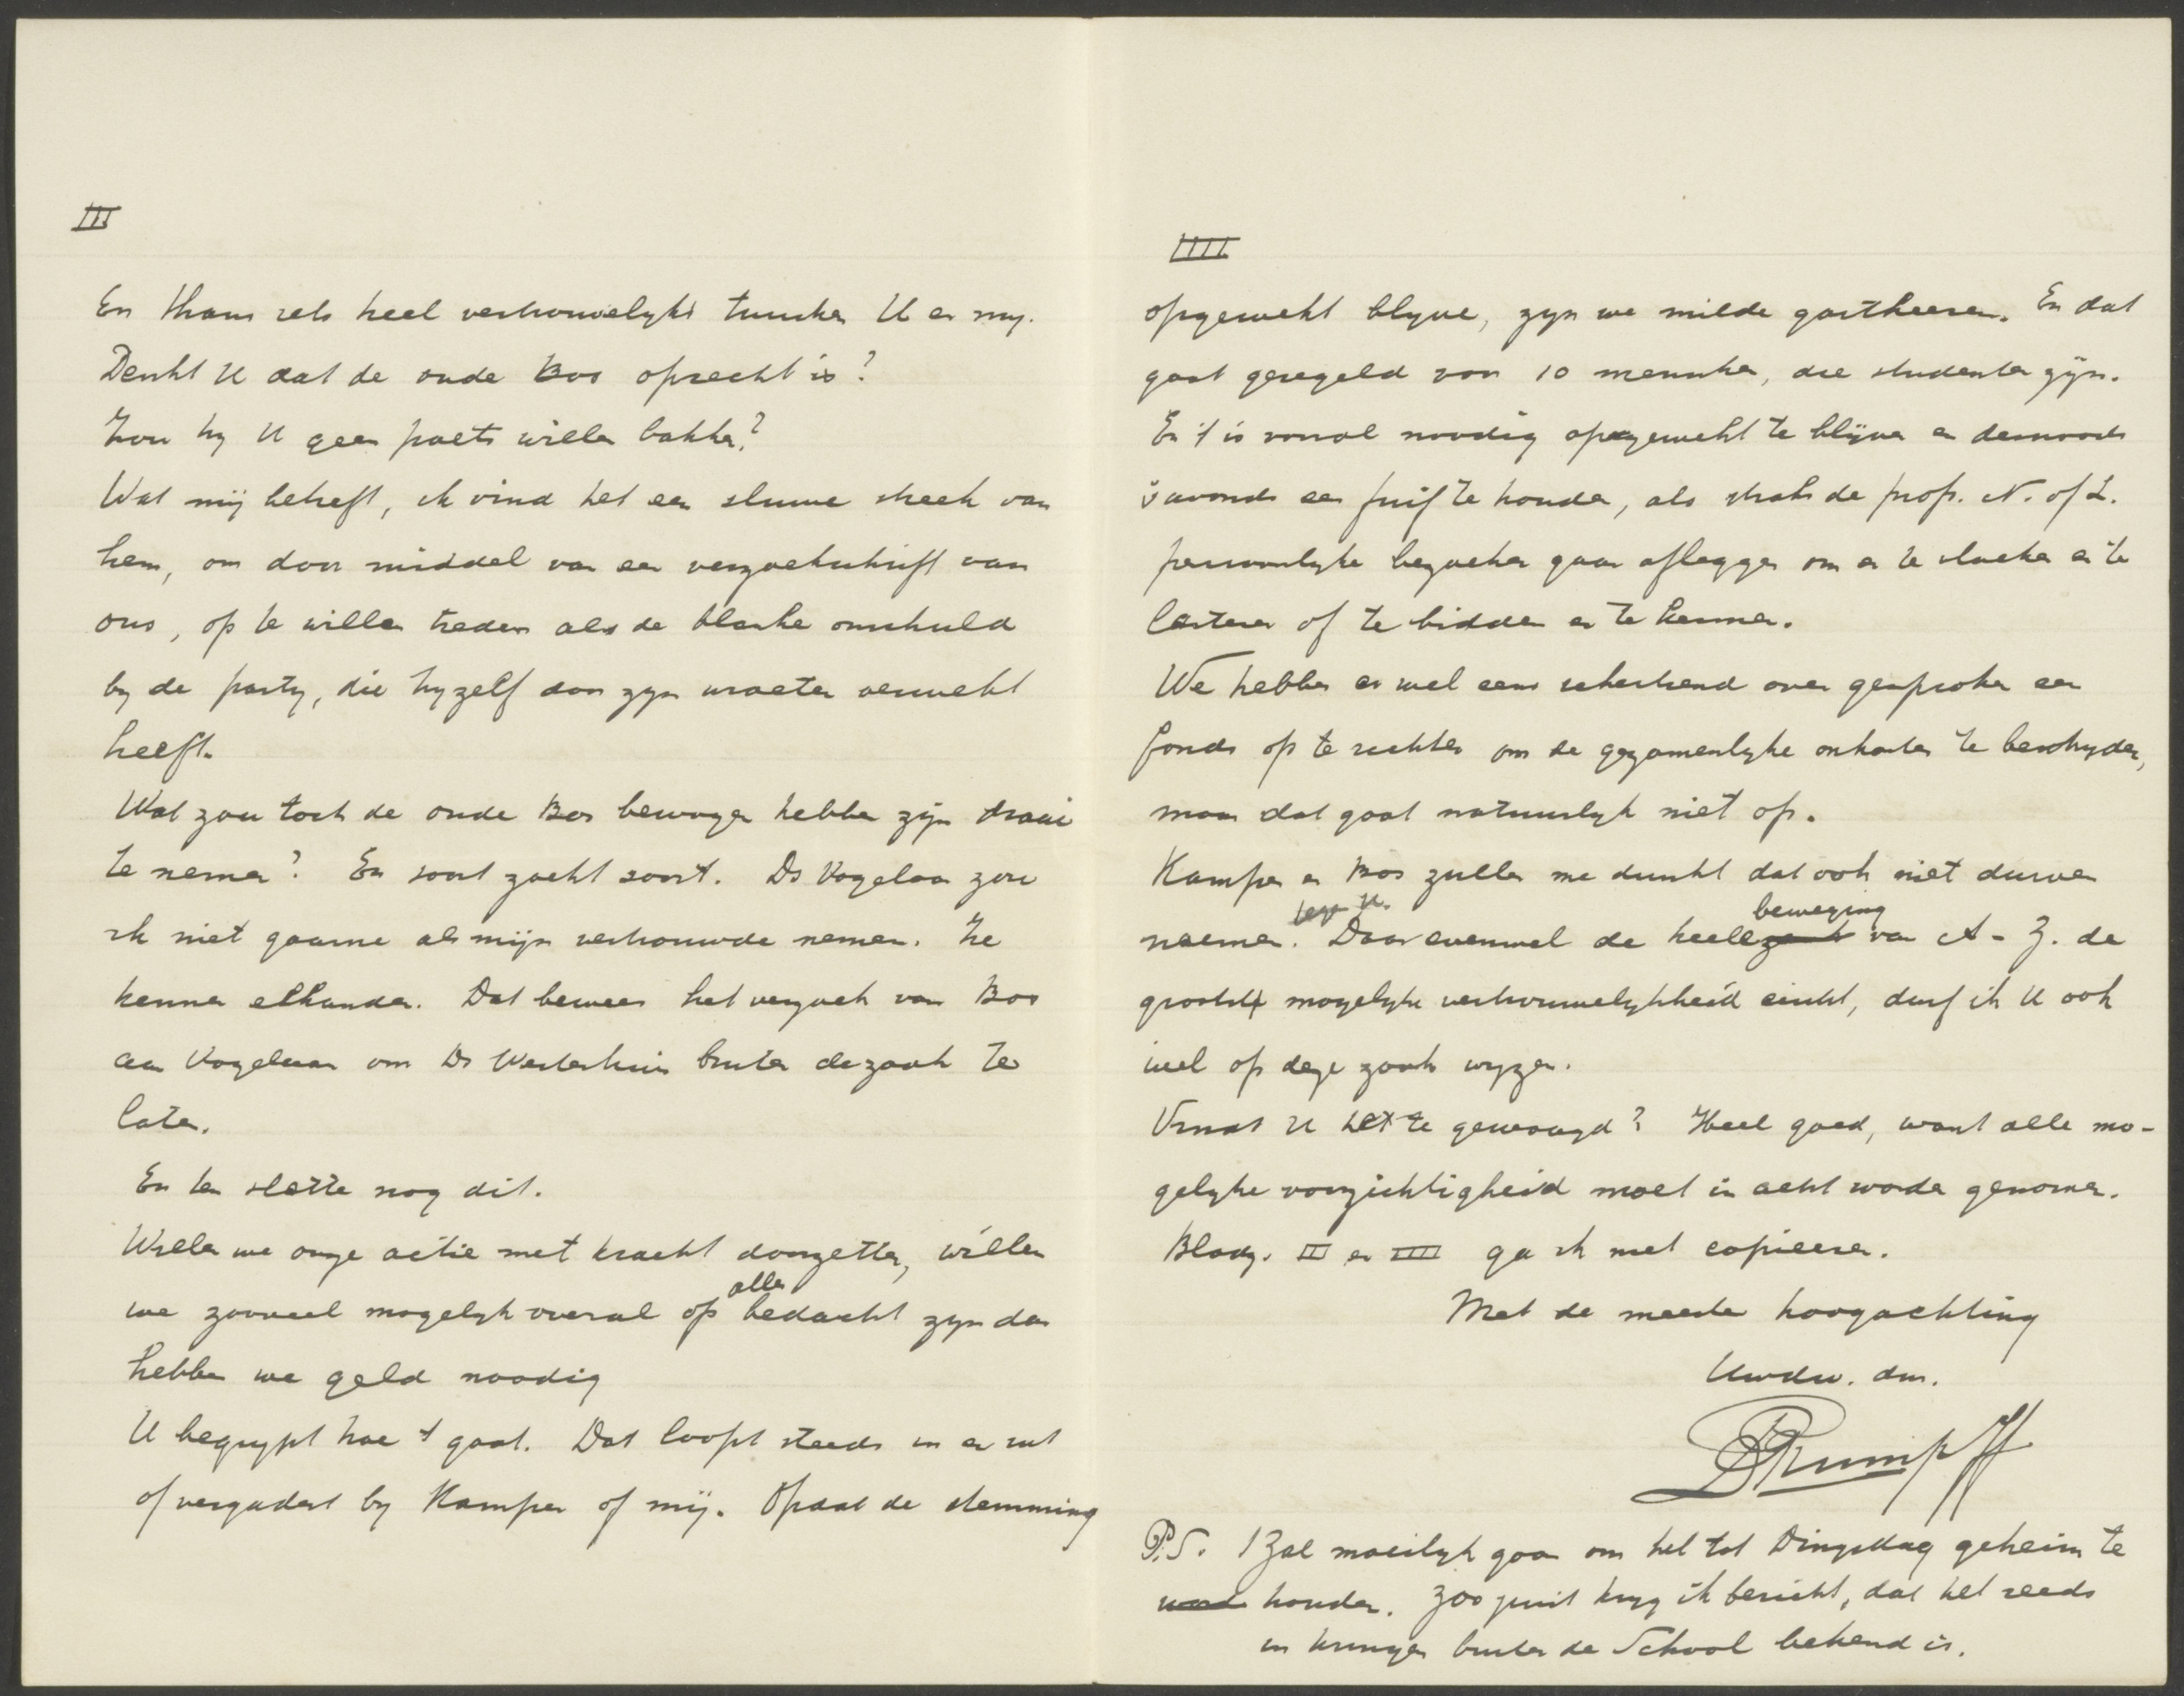 III
En thans iets heel vertrouwelyks tusschen U en my.
Denkt U dat de oude Bos oprecht is?
Zou hy U geen poets willen bakken?
Wat mij betreft, ik vind het een sluwe streek van
hem, om door middel van een verzoekschrift van
ons, op te willen treden als de blanke onschuld
by de party, die hyzelf door zyn wroeten verwekt
heeft.
Wat zou toch de oude Bos bewogen hebben zijn draai
te nemen? En soort zoekt soort. Ds Vogelaar zou
ik niet gaarne als mijn vertrouwde nemen. Ze
kennen elkander. Dat bewees het verzoek van Bos
aan Vogelaar om Ds Westerhuis buiten de zaak te
laten.
En ten slotte nog dit.
Willen we onze actie met kracht doorzetten, willen
we zooveel mogelyk overal op alles bedacht zyn dan
hebben we geld noodig
U begrypt hoe 't gaat. Dat loopt steeds in en uit
of vergadert by Kamper of mij. Opdat de stemming
IIII
opgewekt blyve, zyn we milde gastheeren. En dat
gaat geregeld van 10 menschen, die studenten zijn.
En 't is vooral noodig opgewekt te blijven en desnoods
's avonds een fuif te houden, als straks de prof. N. of L.
persoonlyke bezoeken gaan afleggen om er te vloeken en te
lasteren of te bidden en te kermen.
We hebben er wel eens schertsend over gesproken een
fonds op te richten om de gezamenlyke onkosten te bestryden,
maar dat gaat natuurlyk niet op.
Kamper en Bos zullen me dunkt dat ook niet durven
noemen tegen U. Daar evenwel de heele beweging van A - Z. de
grootst mogelyke vertrouwelykheid eischt, durf ik U ook
wel op deze zaak wyzen.
Vindt U het te gewaagd? Heel goed, want alle mo-
gelyke voorzichtigheid moet in acht worden genomen.
Bladz. III en IIII ga ik niet copieeren.
Met de meeste hoogachting
Uwdw. dnr.
D Rumpff
P.S. 't Zal moeilyk gaan om het tot Dingsdag geheim te
houden. Zoo juist kryg ik bericht, dat het reeds
in kringen buiten de School bekend is.